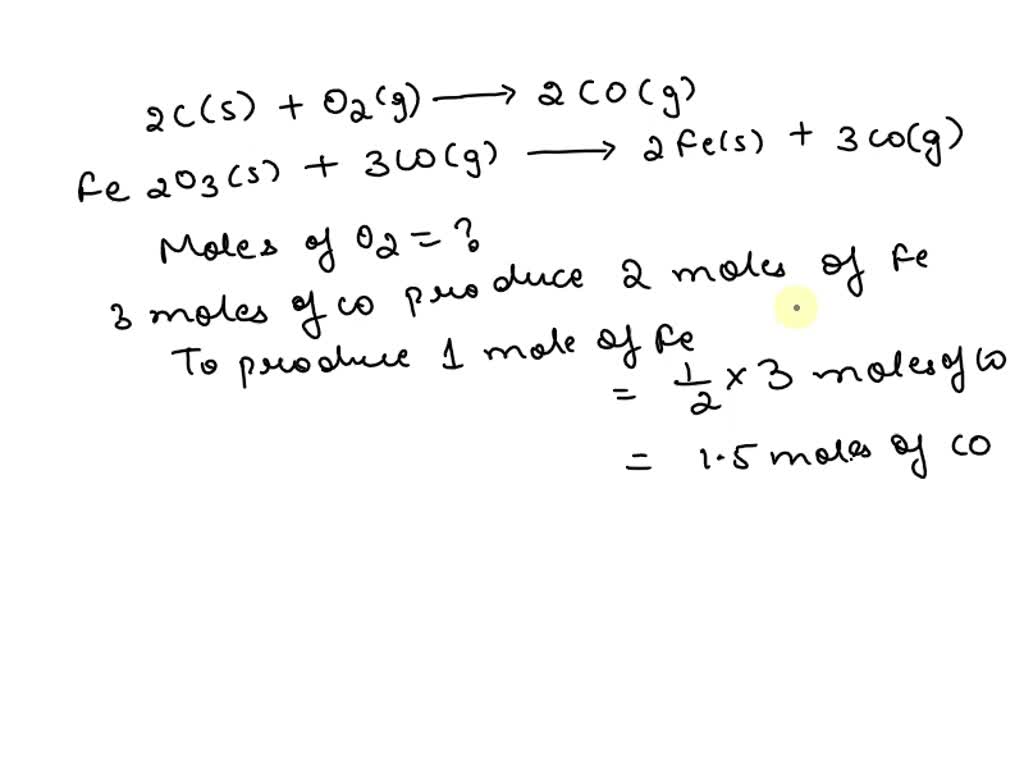 2C(s) + O2(g) → 2CO(g)
Fe2O3(s) + 3CO(g) → 2Fe(s) + 3CO(g)
Moles of O2 = ?
3 moles of CO produce 2 moles of Fe
To produce 1 mole of Fe
= 1/2 × 3 moles of CO
= 1.5 moles of CO